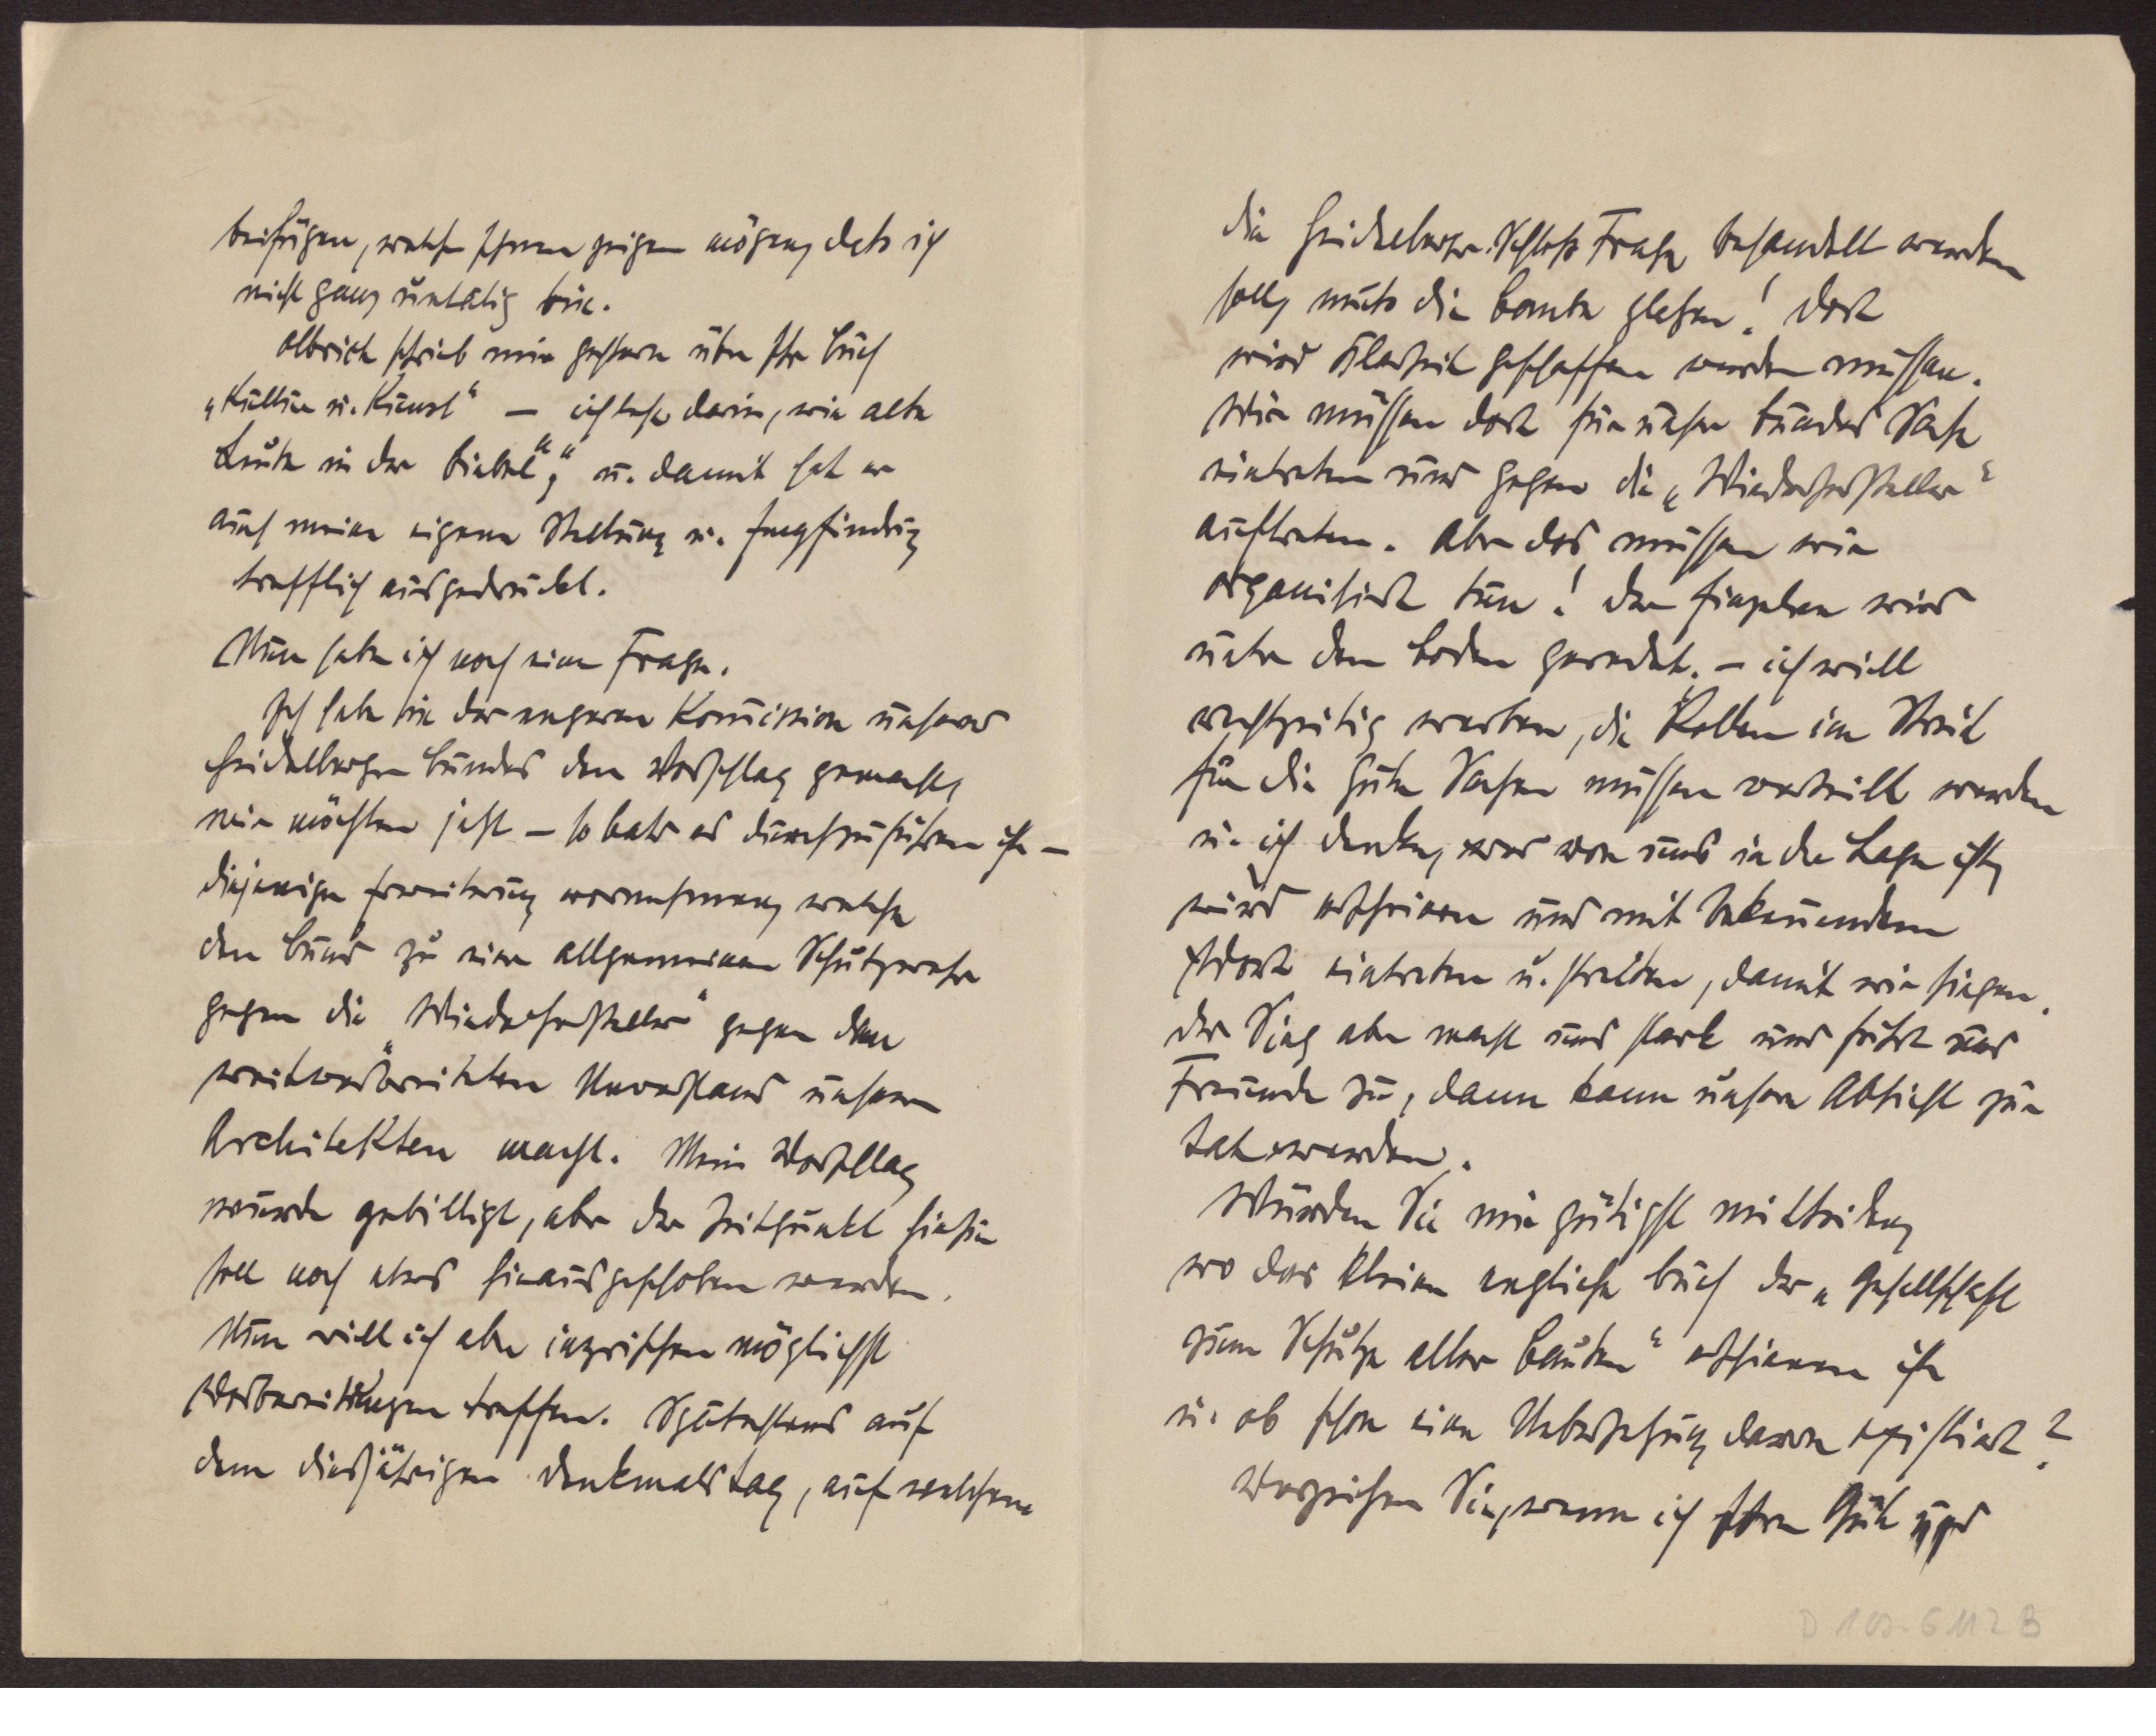 beifügen, welche Ihnen zeigen mögen, dass ich
nicht ganz untätig bin.
Olbrich schrieb mir gestern über Ihr Buch
„Kultur u. Kunst“ – ich lese darin, wie alte
Leute in der Bibel“, u. damit hat er
auch meine eigene Stellung u. Empfindung
trefflich ausgedrückt.
Nun habe ich noch eine Frage.
Ich habe in der engeren Komission unseres
Heidelberger Bundes den Vorschlag gemacht,
wir möchten jetzt – so bald es durchzuführen ist –
diejenige Erweiterung vornehmen, welche
den Bund zu einer allgemeinen Schutzwehr
gegen die „Wiederhersteller“ gegen den
weitverbreiteten Unverstand unserer
Architekten macht. Mein Vorschlag
wurde gebilligt, aber der Zeitpunkt hiefür
soll noch etwas hinausgeschoben werden.
Nun will ich aber inzwischen möglichst
Vorbereitungen treffen. Spätestens auf
dem diesjährigen Denkmalstag, auf welchem
die Heidelberger Schloss Frage behandelt werden
soll, muss die Bombe platzen! Dort
wird Klarheit geschaffen werden müssen.
Wir müssen dort für unsere Bundes Sache
eintreten und gegen die „Wiederhersteller“
auftreten. Aber das müssen wir
organisiert tun! Der Einzelne wird
unter den Boden geredet. – ich will
rechtzeitig werben, die Rollen im Streit
für die gute Sache müssen verteilt werden
u. ich denke, wer von uns in der Lage ist,
wird erscheinen und mit Bekennendem
Wort eintreten u. streiten, damit wir siegen.
Der Sieg aber macht uns stark und führt uns
Freunde zu, dann kann unsere Absicht zur
Tat werden.
Würden Sie mir gütigst mitteilen,
wo das kleine englische Buch der „Gesellschaft
zum Schutze alter Bauten“ erschienen ist
u. ob schon eine Uebersetzung davon existiert?
Verzeihen Sie, wenn ich Ihre Güte und